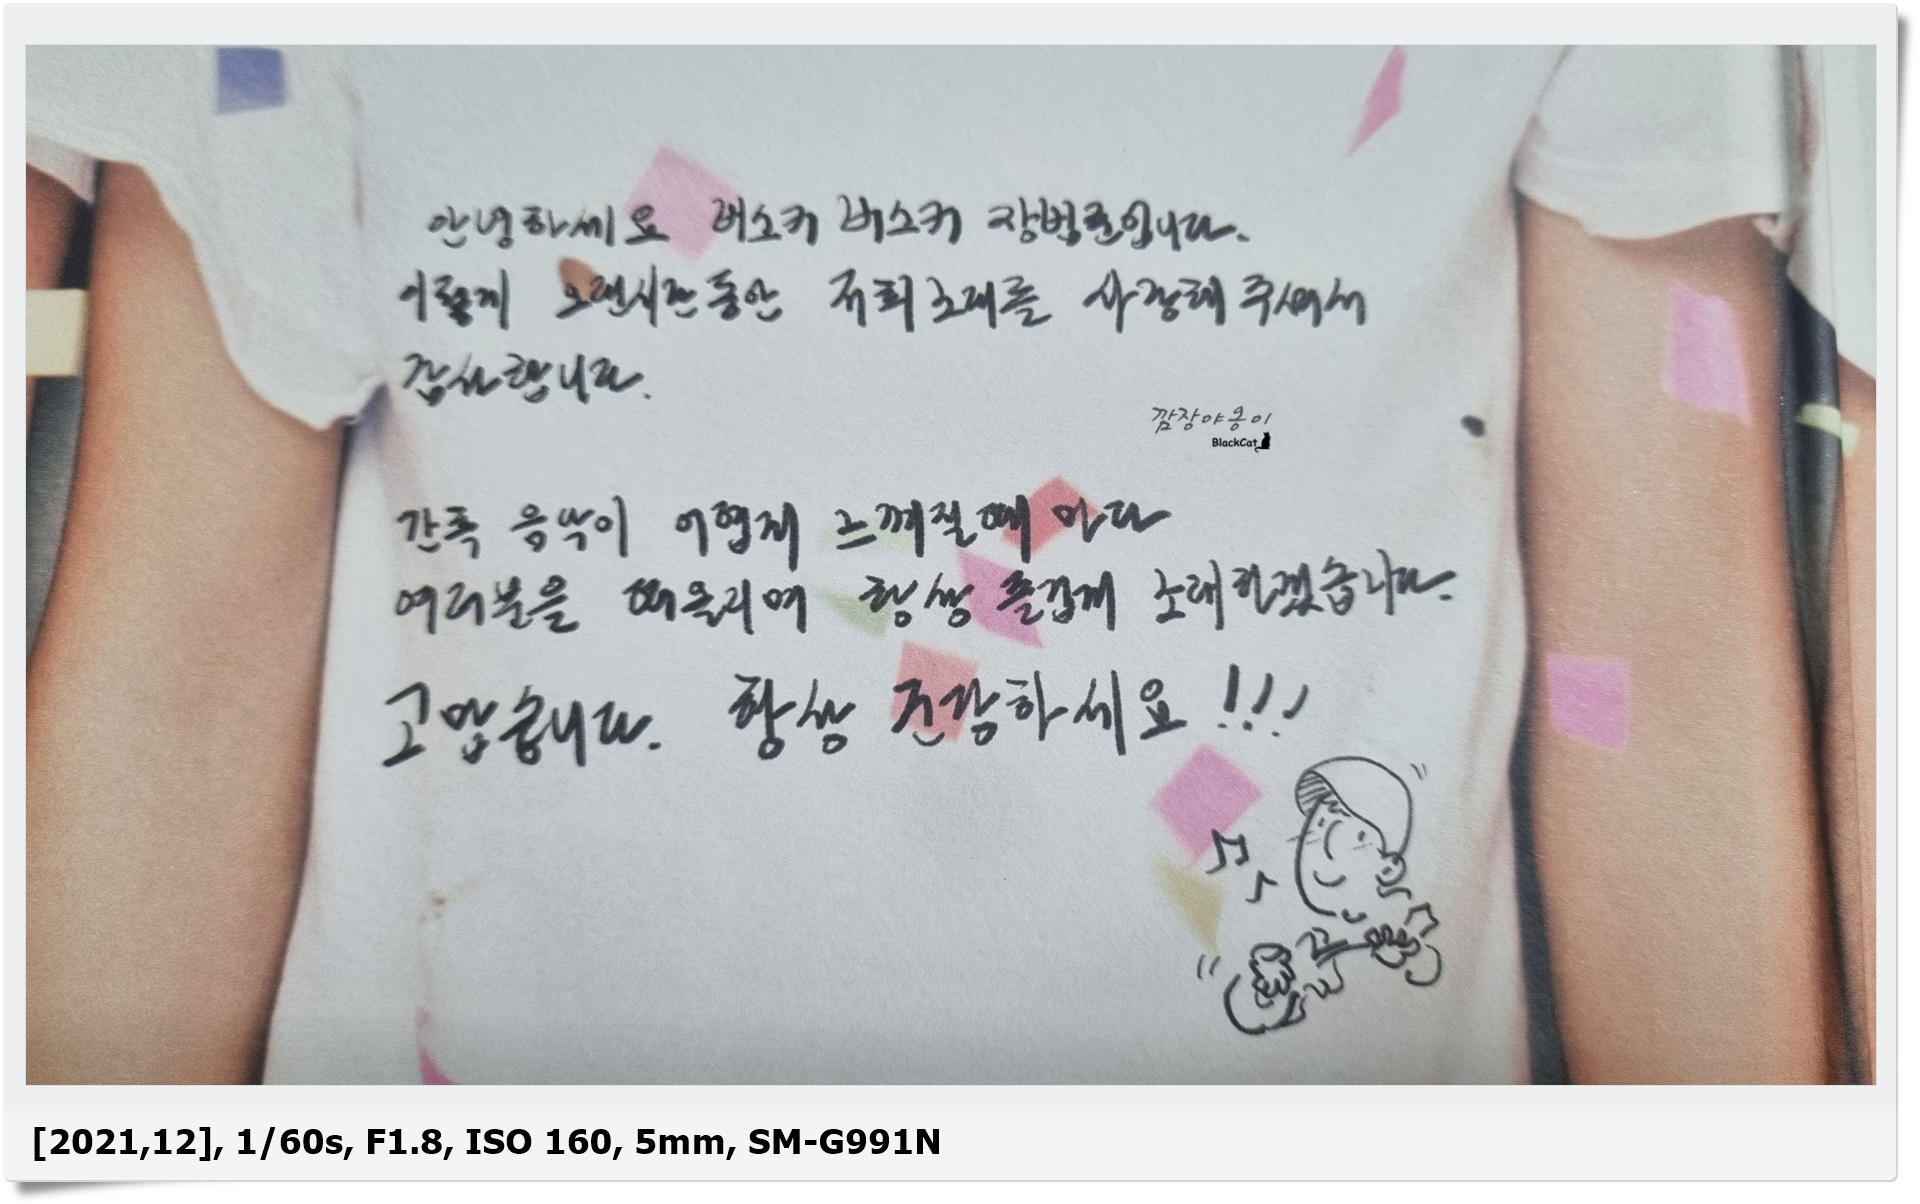 안녕하세요 버스커 버스커 장범준입니다.
이렇게 오랜시간동안 저희 노래를 사랑해 주셔서
감사합니다.
깜장야옹이
BlackCat
간혹 음악이 어렵게 느껴질때 마다
여러분을 떠올리며 항상 즐겁게 노래하겠습니다.
고맙습니다. 항상 건강하세요!!!
[2021,12], 1/60s, F1.8, ISO 160, 5mm, SM-G991N